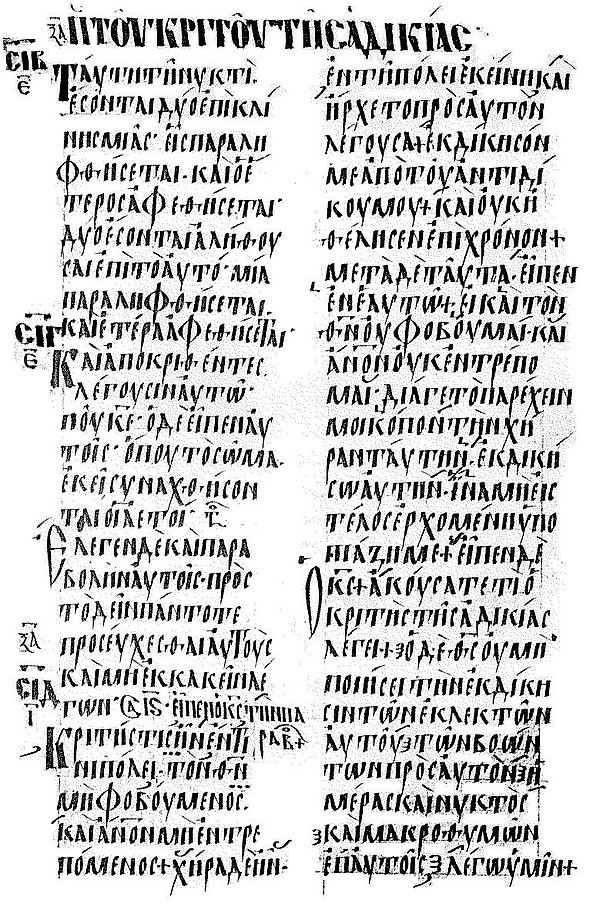 ΞΑ ΠΤΟΥ ΚΡΙΤΟΥ ΤΗΣ ΑΔΙΚΙΑΣ
ΣΙΒ
Ε
ΤΑΥΤΗ ΤΗ ΝΥΚΤΙ.
ΕΣΟΝΤΑΙ ΔΥΟ ΕΠΙ ΚΛΙ
ΝΗΣ ΜΙΑΣ· ΕΙΣ ΠΑΡΑΛΗ
ΦΘΗΣΕΤΑΙ· ΚΑΙ Ο Ε
ΤΕΡΟΣ ΑΦΕΘΗΣΕΤΑΙ·
ΔΥΟ ΕΣΟΝΤΑΙ ΑΛΗΘΟΥ
ΣΑΙ ΕΠΙ ΤΟ ΑΥΤΟ· ΜΙΑ
ΠΑΡΑΛΗΦΘΗΣΕΤΑΙ.
ΣΙΓ ΚΑΙ ΕΤΕΡΑ ΑΦΕΘΗΣΕΤΑΙ·
Ε ΚΑΙ ΑΠΟΚΡΙΘΕΝΤΕΣ
ΛΕΓΟΥΣΙΝ ΑΥΤΩ·
ΠΟΥ ΚΕ· Ο ΔΕ ΕΙΠΕΝ ΑΥ
ΤΟΙΣ· ΟΠΟΥ ΤΟ ΣΩΜΑ.
ΕΚΕΙ ΣΥΝΑΧΘΗΣΟΝ
ΤΑΙ ΟΙ ΑΕΤΟΙ·
ΕΛΕΓΕΝ ΔΕ ΚΑΙ ΠΑΡΑ
ΒΟΛΗΝ ΑΥΤΟΙΣ· ΠΡΟΣ
ΤΟ ΔΕΙΝ ΠΑΝΤΟΤΕ
ΞΑ ΠΡΟΣΕΥΧΕΣΘΑΙ ΑΥΤΟΥΣ
ΣΙΔ ΚΑΙ ΜΗ ΕΚΚΑΚΕΙΝ ΛΕ
Ι ΓΩΝ· ΕΙΠΕΝ Ο ΚΣ ΤΗΝ ΠΑ
ΚΡΙΤΗΣ ΤΙΣ ΗΝ ΕΝ ΤΙ ΡΑΒ+
ΝΙ ΠΟΛΕΙ· ΤΟΝ ΘΝ
ΜΗ ΦΟΒΟΥΜΕΝΟΣ.
ΚΑΙ ΑΝΟΝ ΜΗ ΕΝΤΡΕ
ΠΟΜΕΝΟΣ+ ΧΗΡΑ ΔΕ ΗΝ·
ΕΝ ΤΗ ΠΟΛΕΙ ΕΚΕΙΝΗ ΚΑΙ
ΗΡΧΕΤΟ ΠΡΟΣ ΑΥΤΟΝ
ΛΕΓΟΥΣΑ+ ΕΚΔΙΚΗΣΟΝ
ΜΕ ΑΠΟ ΤΟΥ ΑΝΤΙΔΙ
ΚΟΥ ΜΟΥ+ ΚΑΙ ΟΥΚ Η
ΘΕΛΗΣΕΝ ΕΠΙ ΧΡΟΝΟΝ+
ΜΕΤΑ ΔΕ ΤΑΥΤΑ· ΕΙΠΕΝ
ΕΝ ΕΑΥΤΩ+ ΕΙ ΚΑΙ ΤΟΝ
ΘΝ ΟΥ ΦΟΒΟΥΜΑΙ· ΚΑΙ
ΑΝΟΝ ΟΥΚ ΕΝΤΡΕΠΟ
ΜΑΙ· ΔΙΑ ΓΕ ΤΟ ΠΑΡΕΧΕΙΝ
ΜΟΙ ΚΟΠΟΝ ΤΗΝ ΧΗ
ΡΑΝ ΤΑΥΤΗΝ· ΕΚΔΙΚΗ
ΣΩ ΑΥΤΗΝ· ΙΝΑ ΜΗ ΕΙΣ
ΤΕΛΟΣ ΕΡΧΟΜΕΝΗ ΥΠΟ
ΠΙΑΖΗ ΜΕ+ ΕΙΠΕΝ ΔΕ
Ο ΚΣ+ ΑΚΟΥΣΑΤΕ ΤΙ Ο
ΚΡΙΤΗΣ ΤΗΣ ΑΔΙΚΙΑΣ
ΛΕΓΕΙ+ Ο ΔΕ ΘΣ ΟΥ ΜΗ
ΠΟΙΗΣΕΙ ΤΗΝ ΕΚΔΙΚΗ
ΣΙΝ ΤΩΝ ΕΚΛΕΚΤΩΝ
ΑΥΤΟΥ ΤΩΝ ΒΟΩΝ
ΤΩΝ ΠΡΟΣ ΑΥΤΟΝ Η
ΜΕΡΑΣ ΚΑΙ ΝΥΚΤΟΣ
ΚΑΙ ΜΑΚΡΟΘΥΜΩΝ
ΕΠ ΑΥΤΟΙΣ ΛΕΓΩ ΥΜΙΝ+